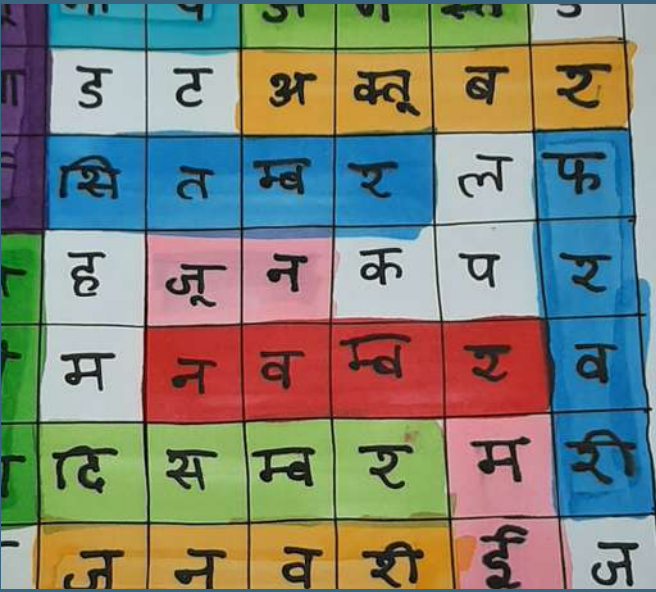 ड ट अ क्तू ब र
सि त म्ब र ल फ
ह जू न क प र
म न व म्ब र व
दि स म्ब र म री
ज न व री ई ज